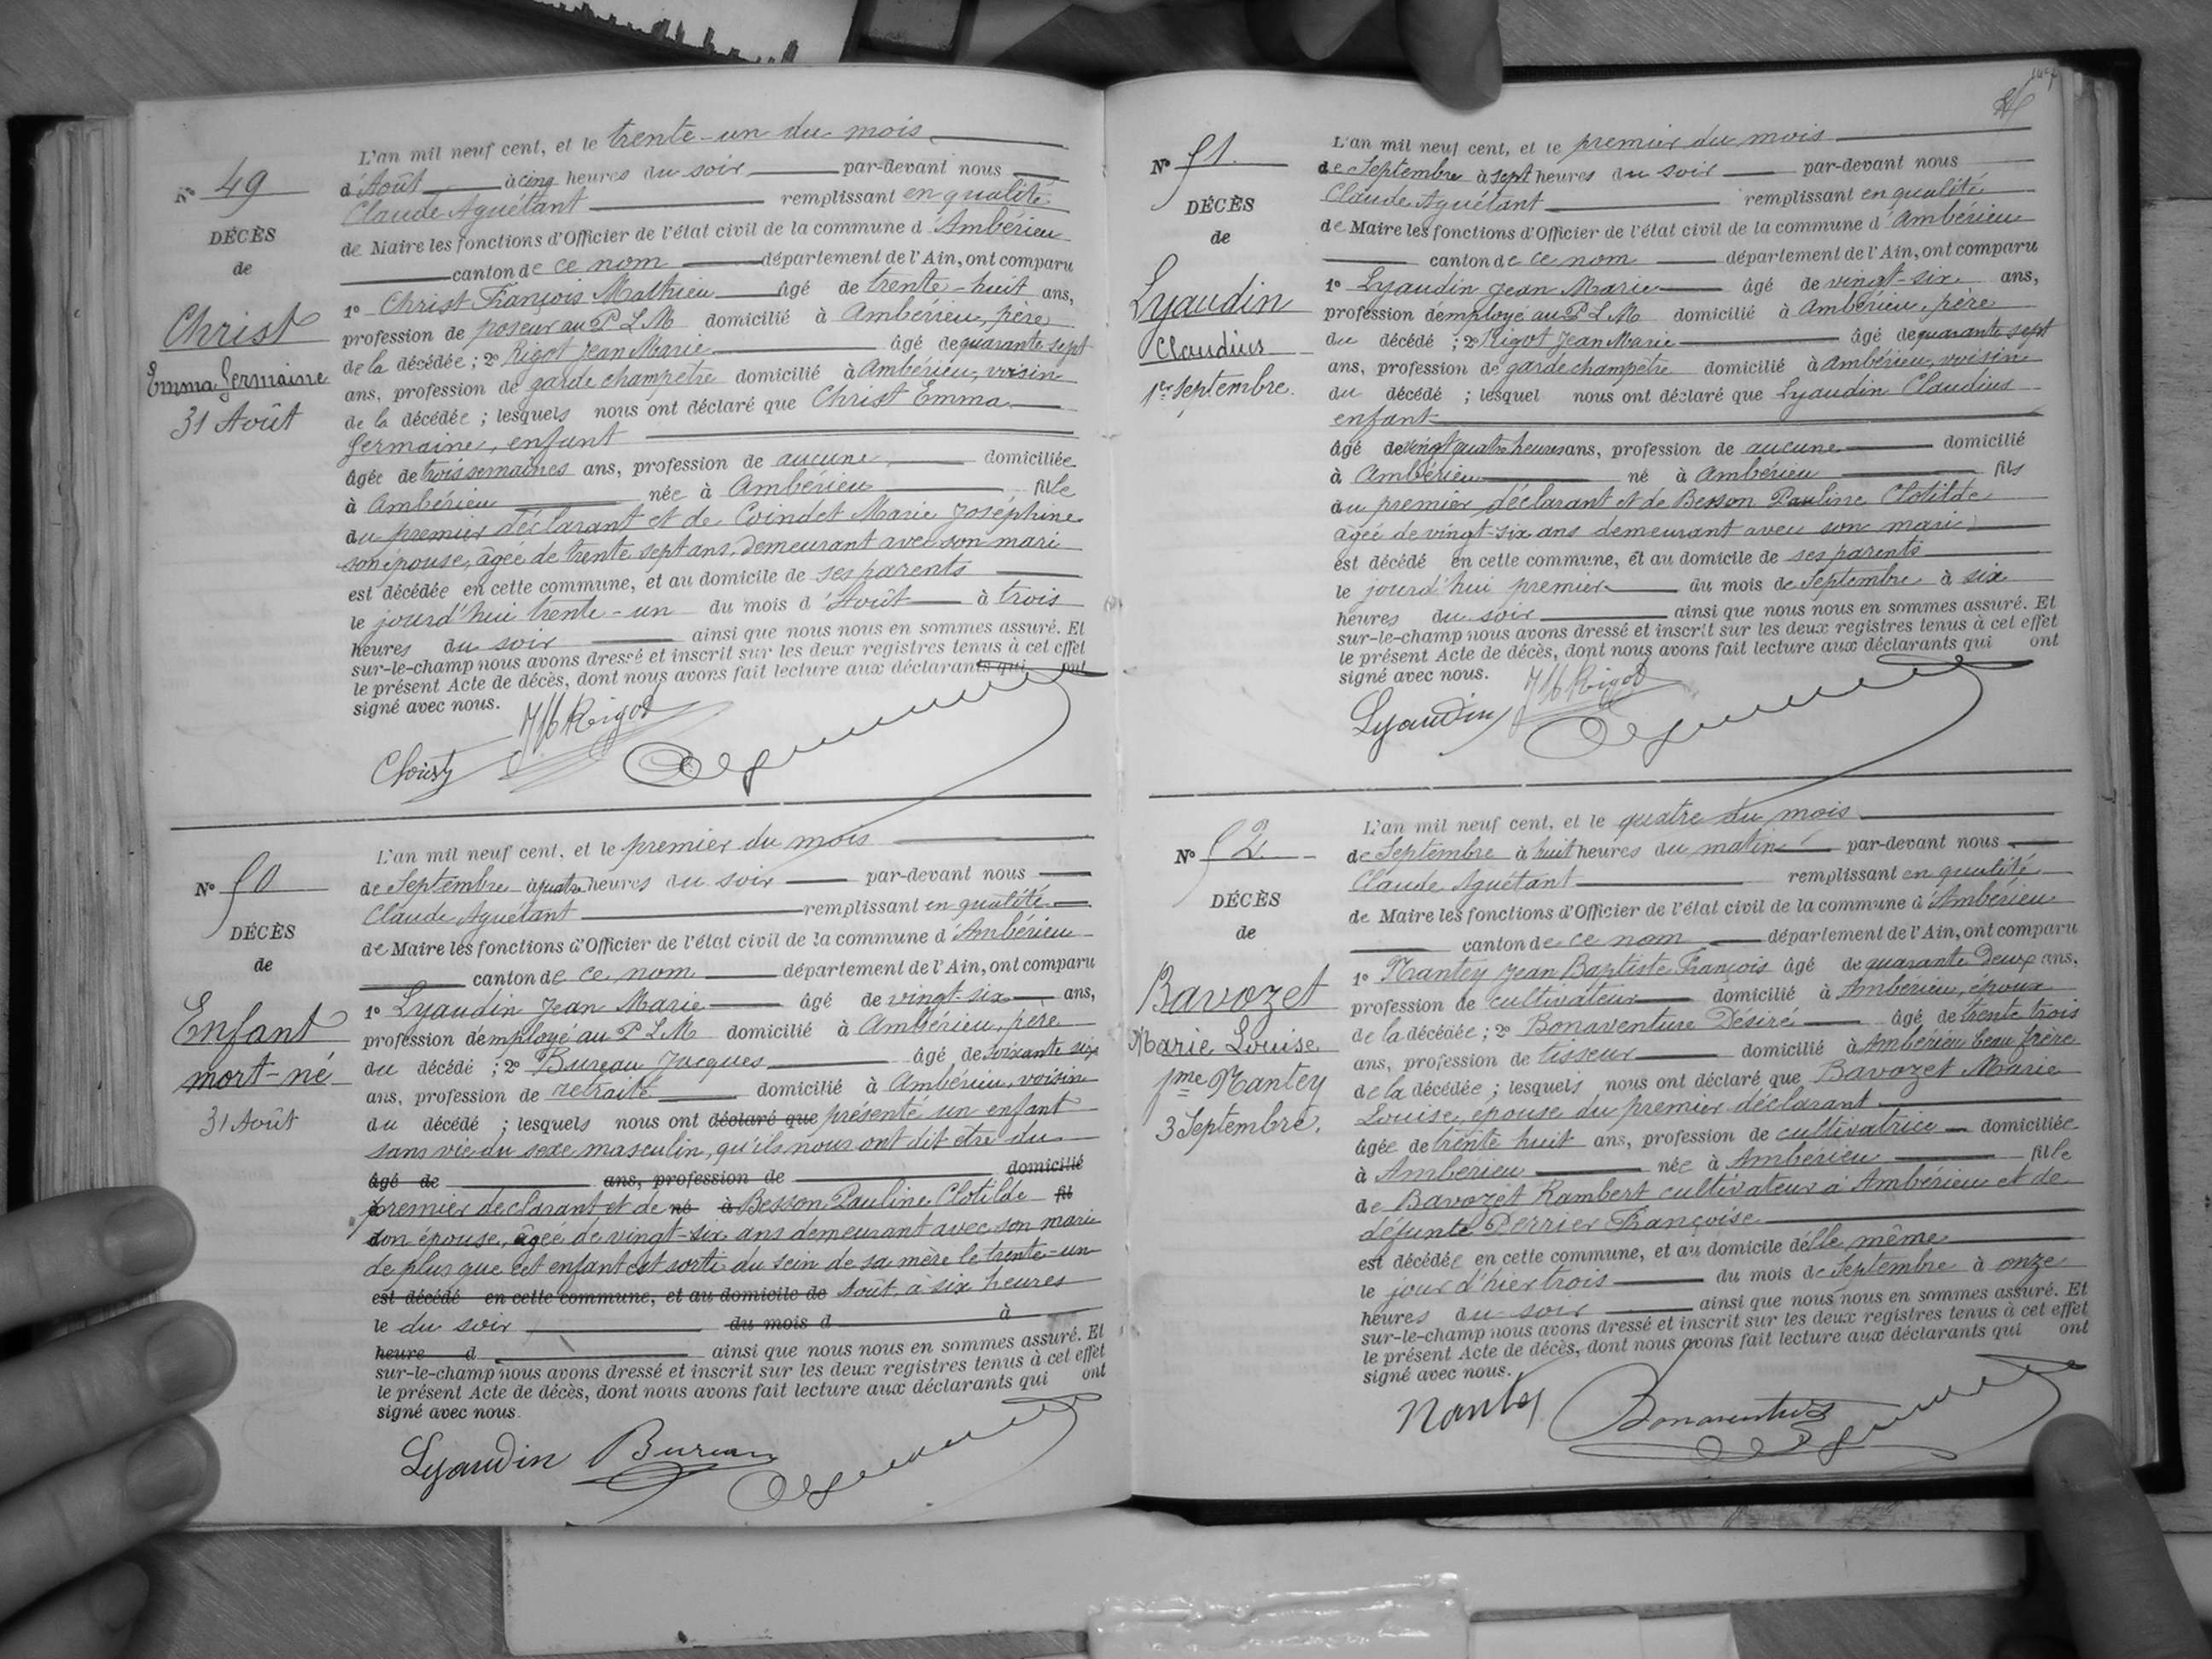 N° 49
DÉCÈS
de
Christ
Emma Germaine
31 Août
L'an mil neuf cent, et le trente-un du mois
d'Août à cinq heures du soir par-devant nous
Claude Aguétant remplissant en qualité
de Maire les fonctions d'Officier de l'état civil de la commune d'Ambérieu
canton de ce nom département de l'Ain, ont comparu
1° Christ François Mathieu âgé de trente-huit ans,
profession de poseur au P L M domicilié à Ambérieu, père
de la décédée ; 2° Rigot Jean Marie âgé de quarante sept
ans, profession de garde champêtre domicilié à Ambérieu, voisin
de la décédée ; lesquels nous ont déclaré que Christ Emma
Germaine, enfant
âgée de trois semaines ans, profession de aucune domiciliée
à Ambérieu née à Ambérieu fille
du premier déclarant et de Coindet Marie Joséphine
son épouse, âgée de trente sept ans, demeurant avec son mari
est décédée en cette commune, et au domicile de ses parents
le jourd'hui trente-un du mois d'Août à trois
heures du soir ainsi que nous nous en sommes assuré. Et
sur-le-champ nous avons dressé et inscrit sur les deux registres tenus à cet effet
le présent Acte de décès, dont nous avons fait lecture aux déclarants qui ont
signé avec nous.
Christ JM Rigot
N° 50
DÉCÈS
de
Enfant
mort-né
31 Août
L'an mil neuf cent, et le premier du mois
de Septembre à quatre heures du soir par-devant nous
Claude Aguétant remplissant en qualité
de Maire les fonctions d'Officier de l'état civil de la commune d'Ambérieu
canton de ce nom département de l'Ain, ont comparu
1° Lyaudin Jean Marie âgé de vingt-six ans,
profession d'employé au P L M domicilié à Ambérieu, père
du décédé ; 2° Bureau Jacques âgé de soixante six
ans, profession de retraité domicilié à Ambérieu, voisin
du décédé ; lesquels nous ont déclaré que présenté un enfant
sans vie du sexe masculin, qu'ils nous ont dit être du
âgé de ans, profession de domicilié
premier déclarant et de né à Besson Pauline Clotilde fil
son épouse, âgée de vingt-six ans demeurant avec son mari
de plus que cet enfant est sorti du sein de sa mère le trente-un
est décédé en cette commune, et au domicile de Août, à six heures
le du soir du mois d à
heure d ainsi que nous nous en sommes assuré. Et
sur-le-champ nous avons dressé et inscrit sur les deux registres tenus à cet effet
le présent Acte de décès, dont nous avons fait lecture aux déclarants qui ont
signé avec nous.
Lyaudin Bureau
N° 51
DÉCÈS
de
Lyaudin
Claudius
1er Septembre.
L'an mil neuf cent, et le premier du mois
de Septembre à sept heures du soir par-devant nous
Claude Aguétant remplissant en qualité
de Maire les fonctions d'Officier de l'état civil de la commune d'Ambérieu
canton de ce nom département de l'Ain, ont comparu
1° Lyaudin Jean Marie âgé de vingt-six ans,
profession d'employé au P L M domicilié à Ambérieu, père
du décédé ; 2° Rigot Jean Marie âgé de quarante sept
ans, profession de garde champêtre domicilié à Ambérieu, voisin
du décédé ; lesquel nous ont déclaré que Lyaudin Claudius
enfant
âgé de vingt quatre heures ans, profession de aucune domicilié
à Ambérieu né à Ambérieu fils
du premier déclarant et de Besson Pauline Clotilde
âgée de vingt-six ans demeurant avec son mari
est décédé en cette commune, et au domicile de ses parents
le jourd'hui premier du mois de Septembre à six
heures du soir ainsi que nous nous en sommes assuré. Et
sur-le-champ nous avons dressé et inscrit sur les deux registres tenus à cet effet
le présent Acte de décès, dont nous avons fait lecture aux déclarants qui ont
signé avec nous.
Lyaudin JM Rigot
N° 52
DÉCÈS
de
Bavozet
Marie Louise
fme Nantey
3 Septembre.
L'an mil neuf cent, et le quatre du mois
de Septembre à huit heures du matin par-devant nous
Claude Aguétant remplissant en qualité
de Maire les fonctions d'Officier de l'état civil de la commune d'Ambérieu
canton de ce nom département de l'Ain, ont comparu
1° Nantey Jean Baptiste François âgé de quarante deux ans,
profession de cultivateur domicilié à Ambérieu, époux
de la décédée ; 2° Bonaventure Désiré âgé de trente trois
ans, profession de tisseur domicilié à Ambérieu beau frère
de la décédée ; lesquels nous ont déclaré que Bavozet Marie
Louise, épouse du premier déclarant
âgée de trente huit ans, profession de cultivatrice domiciliée
à Ambérieu née à Ambérieu fille
de Bavozet Rambert cultivateur à Ambérieu et de
défunte Perrier Françoise
est décédée en cette commune, et au domicile d'elle même
le jour d'hier trois du mois de Septembre à onze
heures du soir ainsi que nous nous en sommes assuré. Et
sur-le-champ nous avons dressé et inscrit sur les deux registres tenus à cet effet
le présent Acte de décès, dont nous avons fait lecture aux déclarants qui ont
signé avec nous.
Nantey Bonaventure